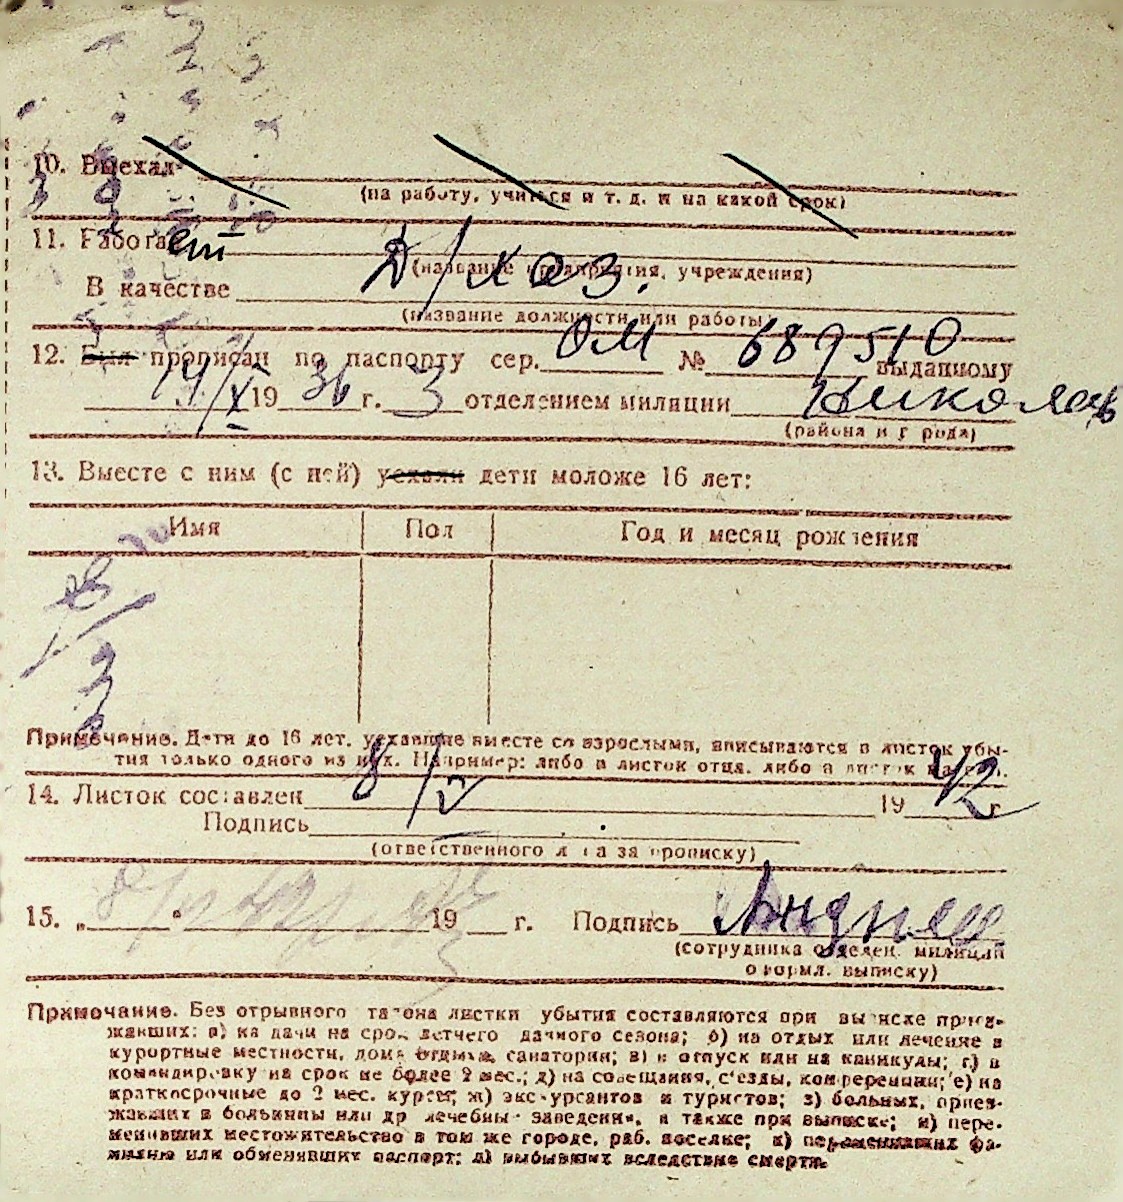 10. Выехал
(на работу, учиться и т. д. и на какой срок)
11. Работает
Д/хоз.
(название предприятия, учреждения)
В качестве
(название должности или работы)
12. Был прописан по паспорту сер. ОМ № 689510 выданному
14/X 1936 г. 3 отделением милиции
(района и города)
13. Вместе с ним (с ней) уехали дети моложе 16 лет:
Имя Пол Год и месяц рождения
Примечание. Дети до 16 лет, уехавшие вместе со взрослыми, вписываются в листок убы-
тия только одного из них. Например: либо в листок отца, либо в листок матери.
14. Листок составлен 8/V 1942 г
Подпись
(ответственного лица за прописку)
15. „ " 19 г. Подпись
(сотрудника отделен. милиции
оформл. выписку)
Примечание. Без отрывного талона листки убытия составляются при выписке приез-
жавших: а) на дачи на срок летнего дачного сезона; б) на отдых или лечение в
курортные местности, дома отдыха, санатории; в) в отпуск или на каникулы; г) в
командировку на срок не более 2 мес.; д) на совещания, съезды, конференции; е) на
краткосрочные до 2 мес. курсы; ж) экскурсантов и туристов; з) больных, приез-
жавших в больницы или др лечебны заведения, а также при выписке; и) пере-
менивших местожительство в том же городе, раб. поселке; к) переменивших фа-
милию или обменявших паспорт; л) выбывших вследствие смерти.